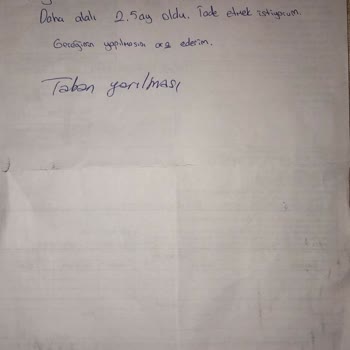 Daha alalı 2.5ay oldu. İade etmek istiyorum.
Gereğinin yapılmasını arz ederim.
Taban yarılması